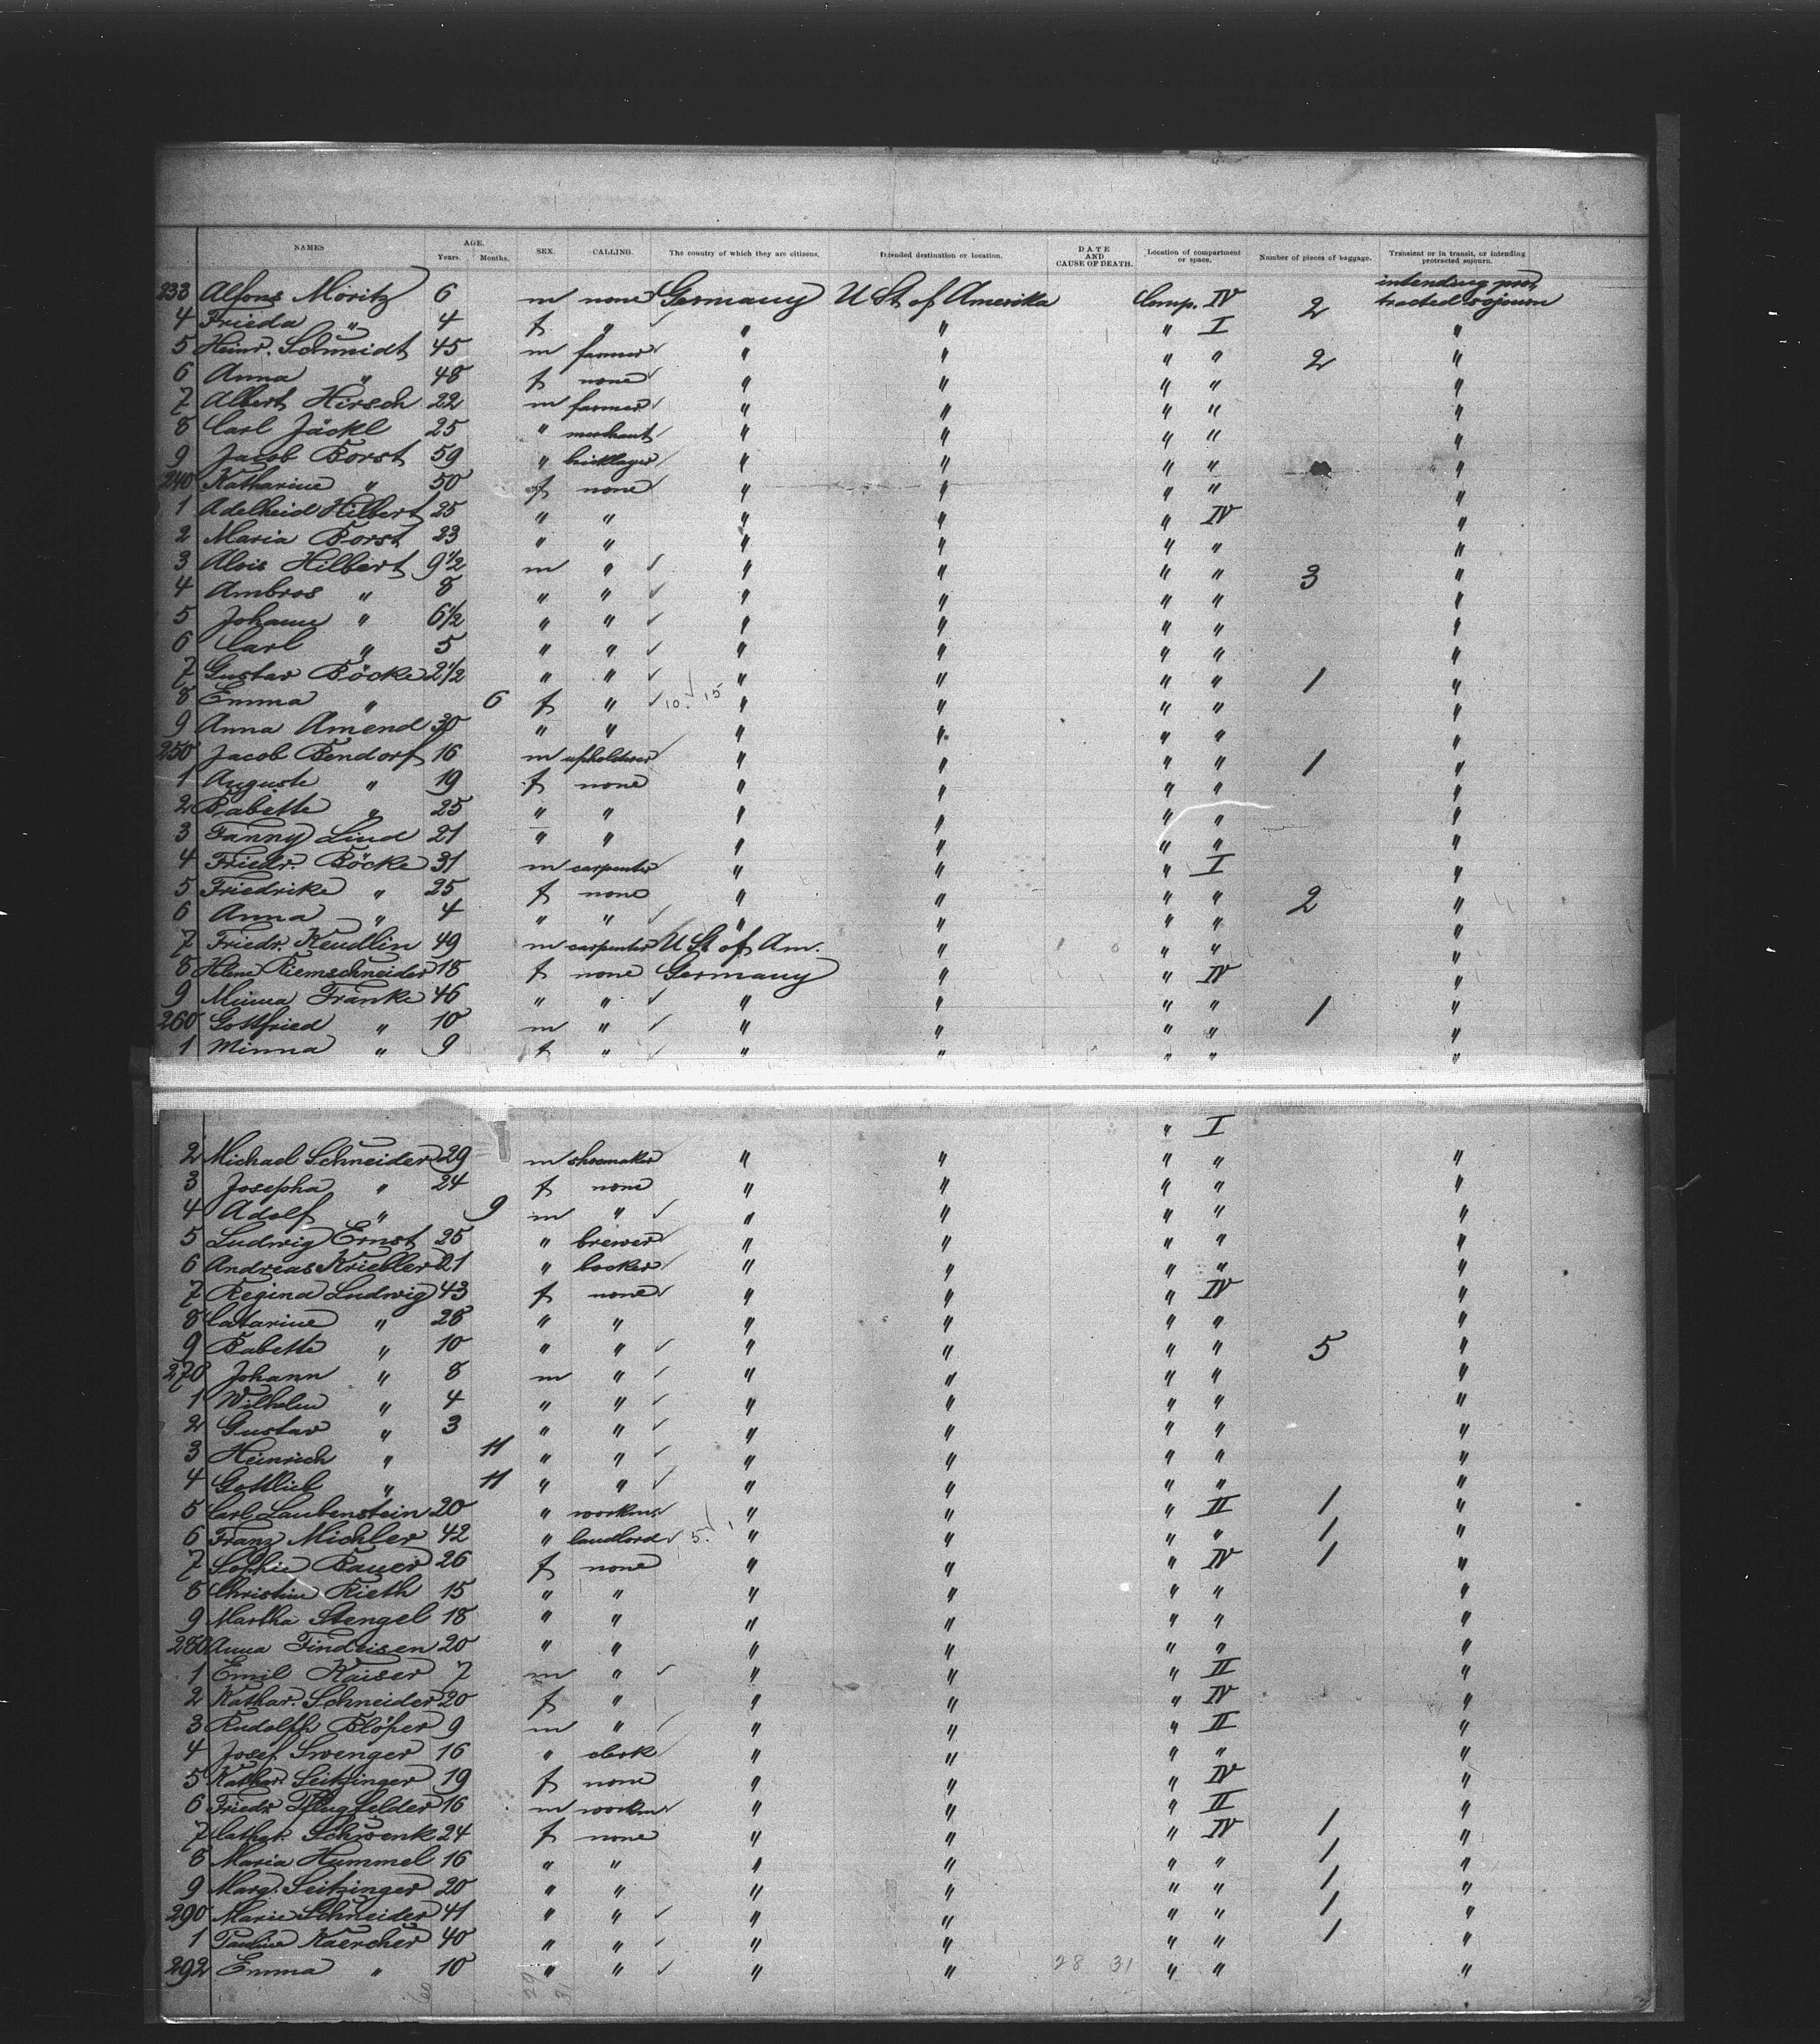 NAMES AGE. Years. Months. SEX. CALLING. The country of which they are citizens. Intended destination or location. DATE AND CAUSE OF DEATH. Location of compartment or space. Number of pieces of baggage. Transient or in transit, or intending protracted sojourn.
233 Alfons Moritz 6 m none Germany U St of Amerika Comp. IV 2 intending protracted sojourn
4 Frieda " 4 f " " " " I "
5 Heinr. Schmidt 45 m farmer " " " " 2 "
6 Anna " 48 f none " " " " "
7 Albert Hirsch 22 m farmer " " " " "
8 Carl Jäckl 25 " merchant " " " " "
9 Jacob Borst 59 " bricklayer " " " " "
240 Katharine " 50 f none " " " " "
1 Adelheid Hilbert 25 " " " " " IV "
2 Maria Borst 23 " " " " " " "
3 Alois Hilbert 9 1/2 m " " " " " 3 "
4 Ambros " 8 " " " " " " "
5 Johann " 6 1/2 " " " " " " "
6 Carl " 5 " " " " " " "
7 Gustav Böcke 2 1/2 " " " " " " 1 "
8 Emma " 6 f " 10 15 " " " " "
9 Anna Amend 30 " " " " " " "
250 Jacob Bendorf 16 m upholsterer " " " " 1 "
1 Auguste " 19 f none " " " " "
2 Babette " 25 " " " " " " "
3 Fanny Lind 21 " " " " " " "
4 Friedr. Böcke 31 m carpenter " " " I "
5 Friedrike " 25 f none " " " " 2 "
6 Anna " 4 " " " " " " "
7 Friedr. Keudlin 49 m carpenter U St of Am. " " " "
8 Helene Riemschneider 18 f none Germany " " IV "
9 Minna Franke 46 " " " " " " 1 "
260 Gottfried " 10 m " " " " " "
1 Minna " 9 f " " " " " "
" I
2 Michael Schneider 29 m shoemaker " " " " "
3 Josepha " 24 f none " " " " "
4 Adolf " 9 m " " " " " "
5 Ludwig Ernst 25 " brewer " " " " "
6 Andreas Kriebler 21 " backer " " " " "
7 Regina Ludwig 43 f none " " " IV "
8 Catarine " 28 " " " " " " "
9 Babette " 10 " " " " " " 5 "
270 Johann " 8 m " " " " " "
1 Wilhelm " 4 " " " " " " "
2 Gustav " 3 " " " " " " "
3 Heinrich " 11 " " " " " " "
4 Gottlieb " 11 " " " " " " "
5 Carl Laubenstein 20 " workm. " " " II 1 "
6 Franz Michler 42 " landlord 5 " " " " 1 "
7 Sophie Bauer 26 f none " " " IV 1 "
8 Christine Rieth 15 " " " " " " "
9 Martha Stengel 18 " " " " " " "
280 Anna Findeisen 20 " " " " " " "
1 Emil Kaiser 7 m " " " " II "
2 Kathar. Schneider 20 f " " " " IV "
3 Rudolph Blößer 9 m " " " " II "
4 Josef Swenger 16 " clerk " " " " "
5 Kathar. Seitzinger 19 f none " " " IV "
6 Friedr. Pflugfelder 16 m workm " " " II "
7 Cathar. Schwenk 24 f none " " " IV 1 "
8 Maria Hummel 16 " " " " " " 1 "
9 Marg. Seitzinger 20 " " " " " " 1 "
290 Marie Schneider 41 " " " " " " 1 "
1 Pauline Kaercher 40 " " " " " " 1 "
292 Emma " 10 " " " " 28 31 " " "